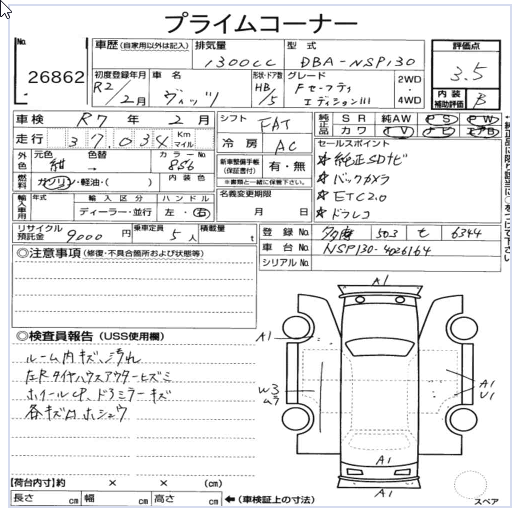 プライムコーナー
No. 26862
車歴 (自家用以外は記入)
排気量 1300cc
型式 DBA-NSP130
評価点 3.5
内装補助評価 B
初度登録年月 R2/2月
車名 ヴィッツ
形状・ドア数 HB/5
グレード Fセーフティ エディションIII
2WD・4WD
車検 R7年 2月
シフト FAT
純正品 SR 純AW PS PW
純正品 カワ TV ナビ エアB
走行 37,034 Km マイル
冷房 AC
セールスポイント
☆ 純正SDナビ
☆ バックカメラ
☆ ETC2.0
☆ ドラレコ
外色 元色 紺 色替 カラーNo. 8S6
新車整備手帳 (保証書付) 有・無
※書類と一緒に保管下さい。
燃料 ガソリン・軽油・( ) 内装色
輸入車用 年式 輸入区分 ディーラー・並行 ハンドル 左・右
名義変更期限 月 日
リサイクル預託金 9000円
乗車定員 5人
積載量 t
登録No. 多摩 503 せ 6344
車台No. NSP130-4026164
シリアルNo.
◎注意事項 (修復・不具合箇所および状態等)
◎検査員報告 (USS使用欄)
ルーム内キズ、汚れ
左Rタイヤハウスアウターヒズミ
ホイールCP、ドアミラーキズ
各キズロホシュウ
A1
A1
W3
ムラ
A1
U1
A1
A1
スペア
【荷台内寸】約 × × (cm)
長さ cm 幅 cm 高さ cm ←(車検証上の寸法)